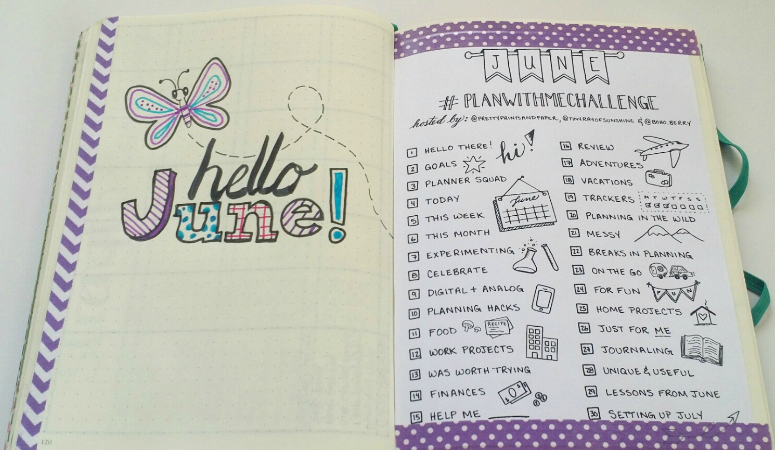 hello
June!
JUNE
# PLANWITHMECHALLENGE
hosted by: @PRETTYPRINTSANDPAPER, @TINYRAYOFSUNSHINE & @BOHO.BERRY
1 HELLO THERE!
hi!
2 GOALS
3 PLANNER SQUAD
4 TODAY
June
5 THIS WEEK
6 THIS MONTH
7 EXPERIMENTING
8 CELEBRATE
9 DIGITAL + ANALOG
10 PLANNING HACKS
11 FOOD
RECIPE
12 WORK PROJECTS
13 WAS WORTH TRYING
14 FINANCES
15 HELP ME
16 REVIEW
17 ADVENTURES
18 VACATIONS
19 TRACKERS
M T W T F S S
20 PLANNING IN THE WILD
21 MESSY
22 BREAKS IN PLANNING
23 ON THE GO
24 FOR FUN
FUN
25 HOME PROJECTS
26 JUST FOR ME
27 JOURNALING
28 UNIQUE & USEFUL
29 LESSONS FROM JUNE
30 SETTING UP JULY